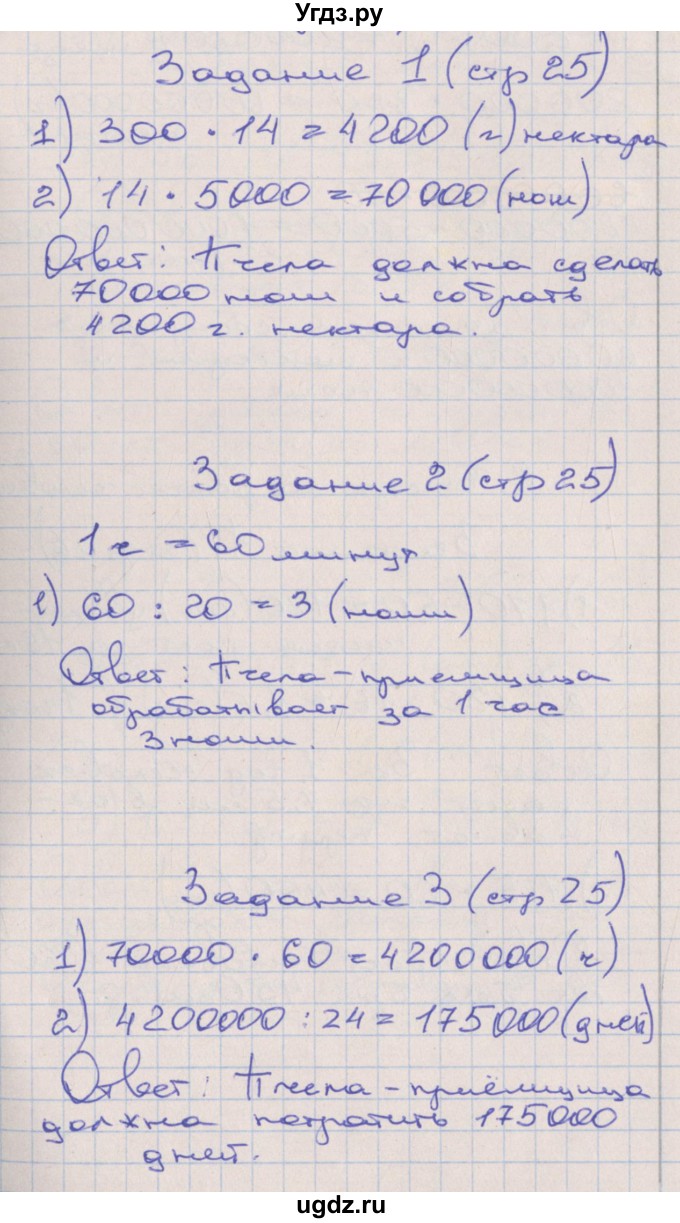 Угдз.ру
Задание 1 (стр 25)
1) 300 · 14 = 4200 (г) нектара
2) 14 · 5000 = 70 000 (нош)
Ответ: Пчела должна сделать
70000 нош и собрать
4200 г. нектара.
Задание 2 (стр 25)
1 ч = 60 минут
1) 60 : 20 = 3 (ноши)
Ответ: Пчела-приемщица
обрабатывает за 1 час
3 ноши.
Задание 3 (стр 25)
1) 70000 · 60 = 4200000 (ч)
2) 4200000 : 24 = 175000 (дней)
Ответ: Пчела-приёмщица
должна потратить 175000
дней.
ugdz.ru